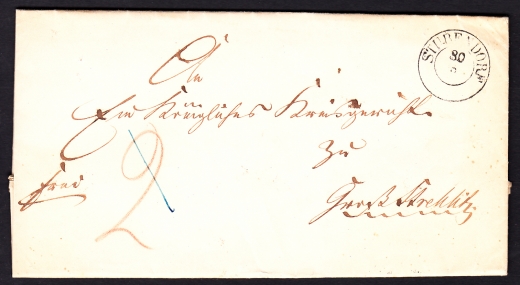 STUBENDORF
30
An
Ein Königliches Kreisgericht
zu
frei
2
Groß Strehlitz